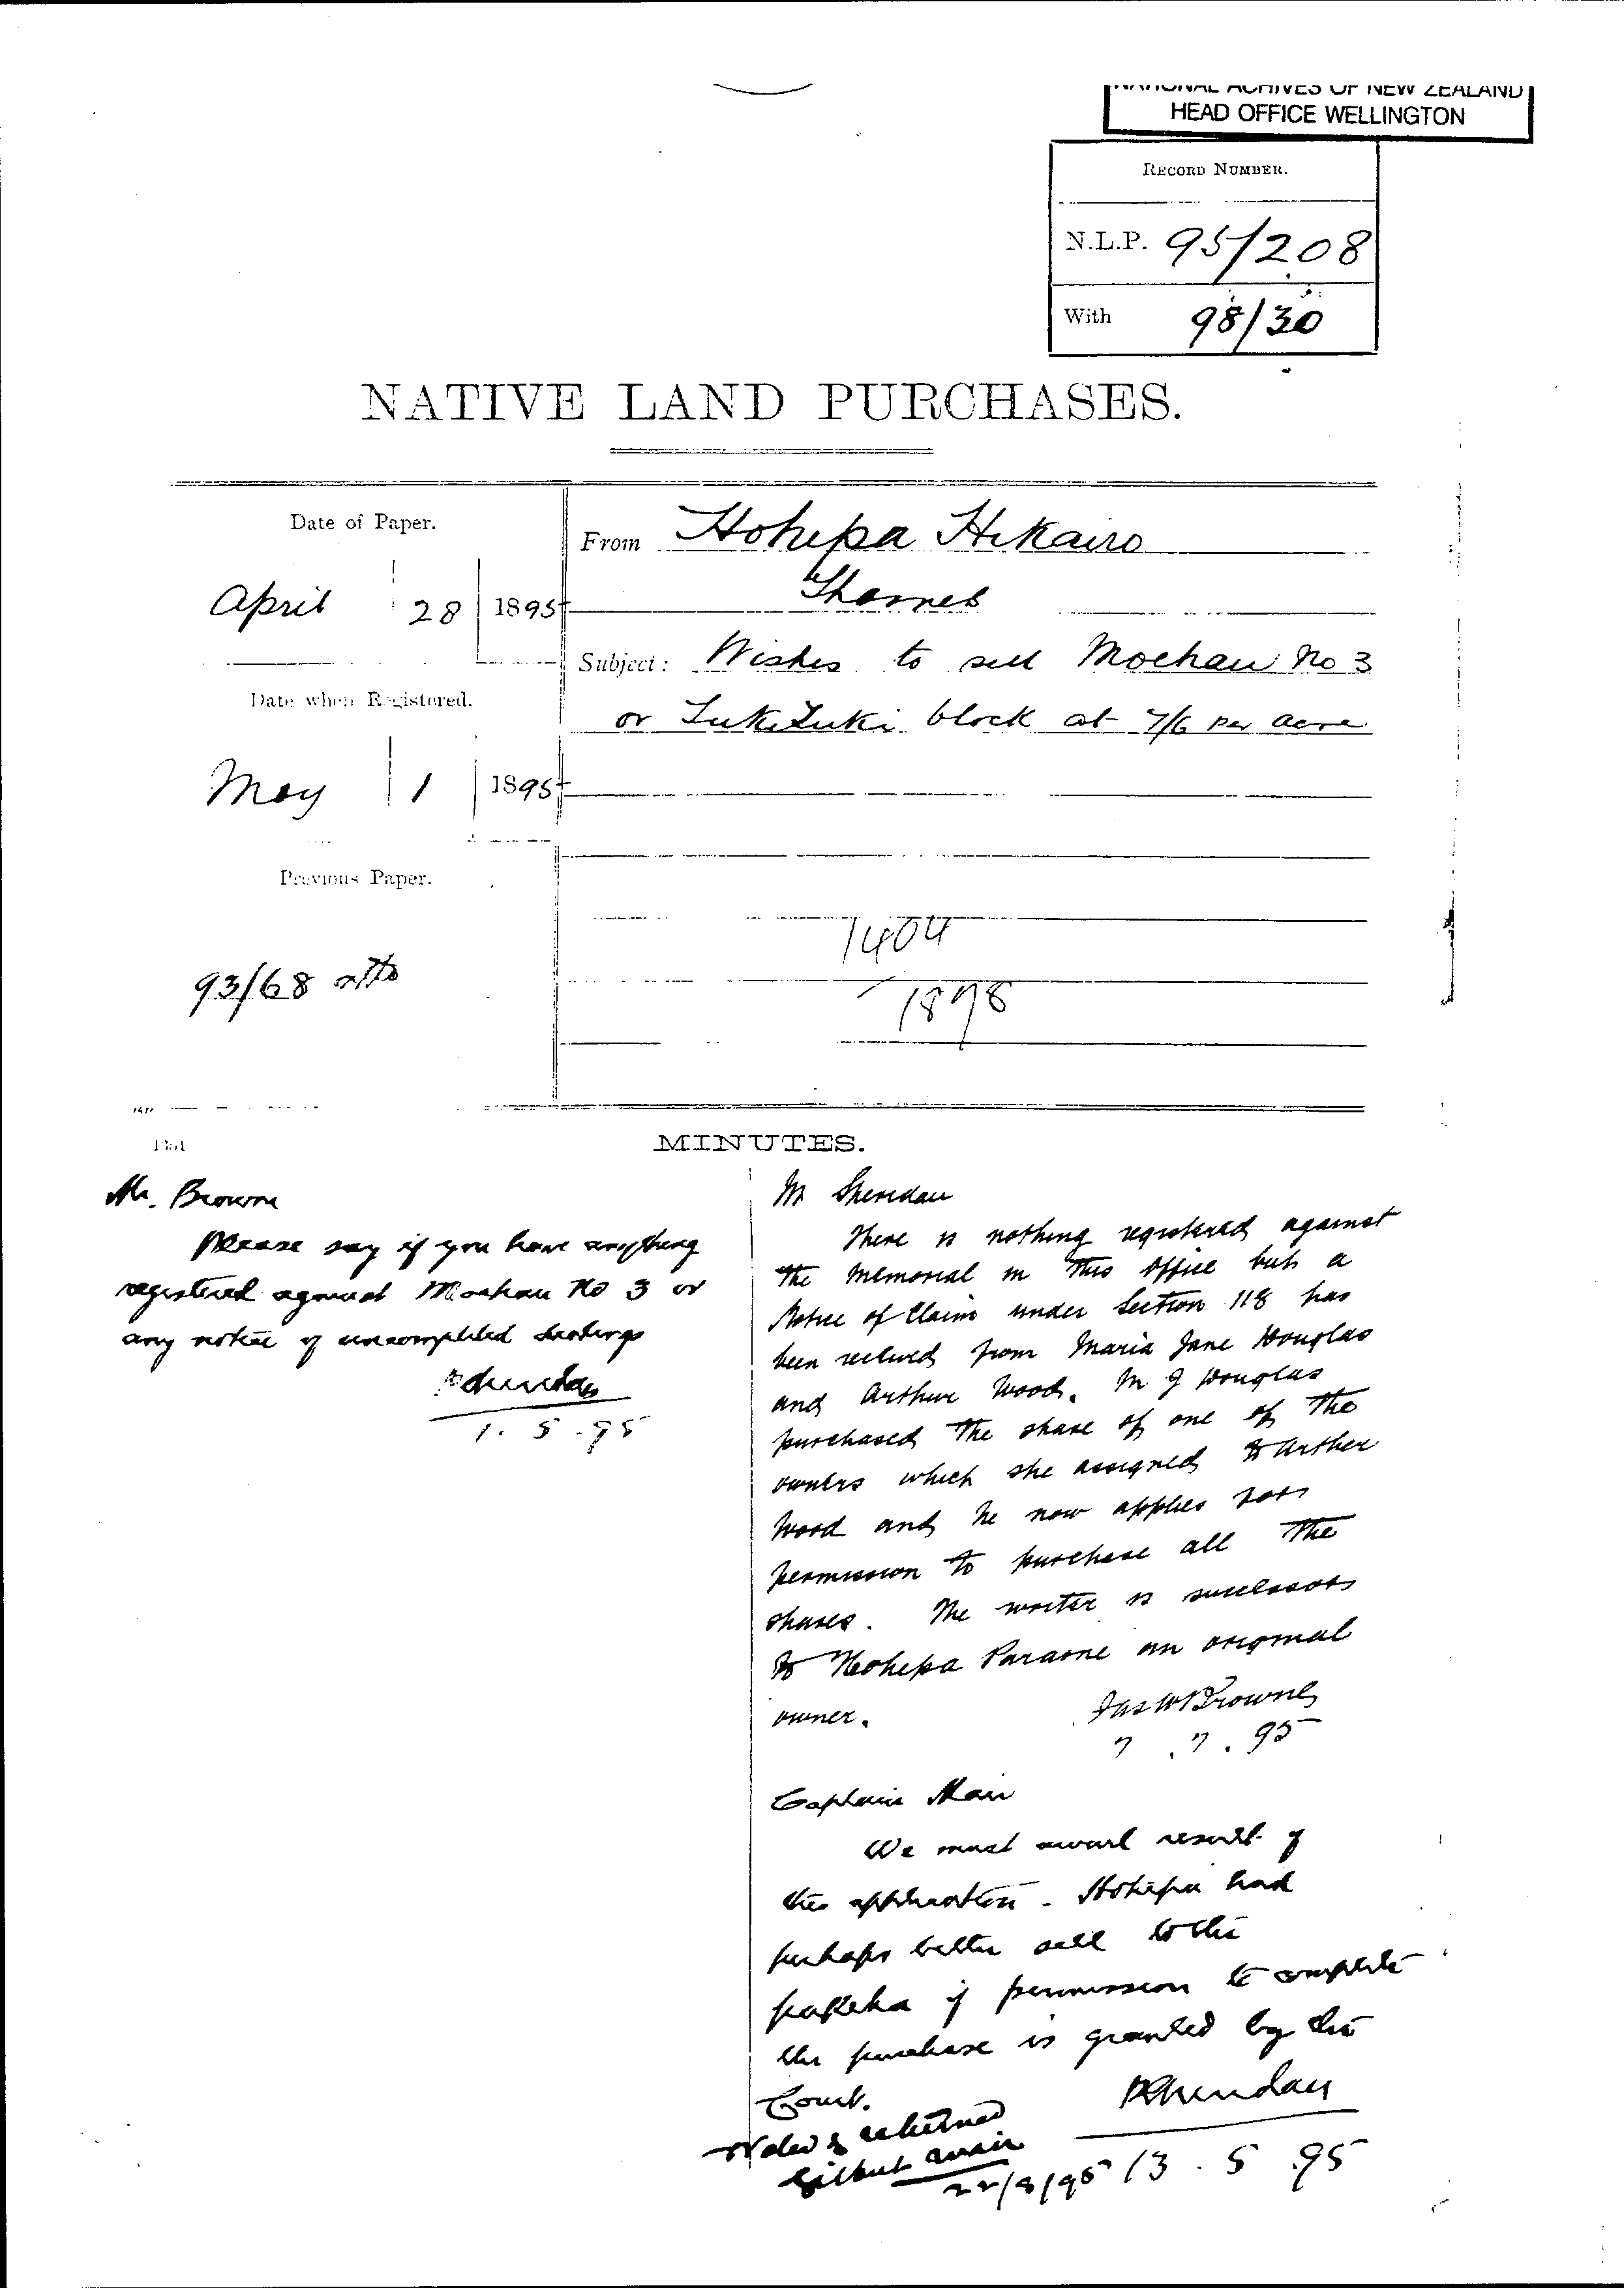 NATIONAL ACHIVES OF NEW ZEALAND
HEAD OFFICE WELLINGTON
RECORD NUMBER.
N.L.P. 95/208
With 98/30
NATIVE LAND PURCHASES.
Date of Paper.
April 28 1895
Date when Registered.
May 1 1895
Previous Paper.
93/68
From Hohepa Hikairo
Thames
Subject: Wishes to sell Moehau No 3
or TukiTuki block at 7/6 per acre
1404
1898
MINUTES.
Mr. Browne
Please say if you have anything
registered against Moehau No 3 or
any notice of uncompleted dealings
PSheridan
1. 5. 95
Mr Sheridan
There is nothing registered against
the memorial in this office but a
Notice of Claim under Section 118 has
been received from Maria Jane Douglas
and Arthur Wood. M J Douglas
purchased the share of one of the
owners which she assigned to Arther
Wood and he now applies for
permission to purchase all the
shares. The writer is successor
to Hohepa Paraone an original
owner.
Jas W Browne
7. 7. 95
Captain Mair
We must await result of
the application. Hohepa had
perhaps better sell to the
pakeha if permission to complete
the purchase is granted by the
Court.
PSheridan
13. 5. 95
Noted & returned
Gilbert Mair
22/8/95